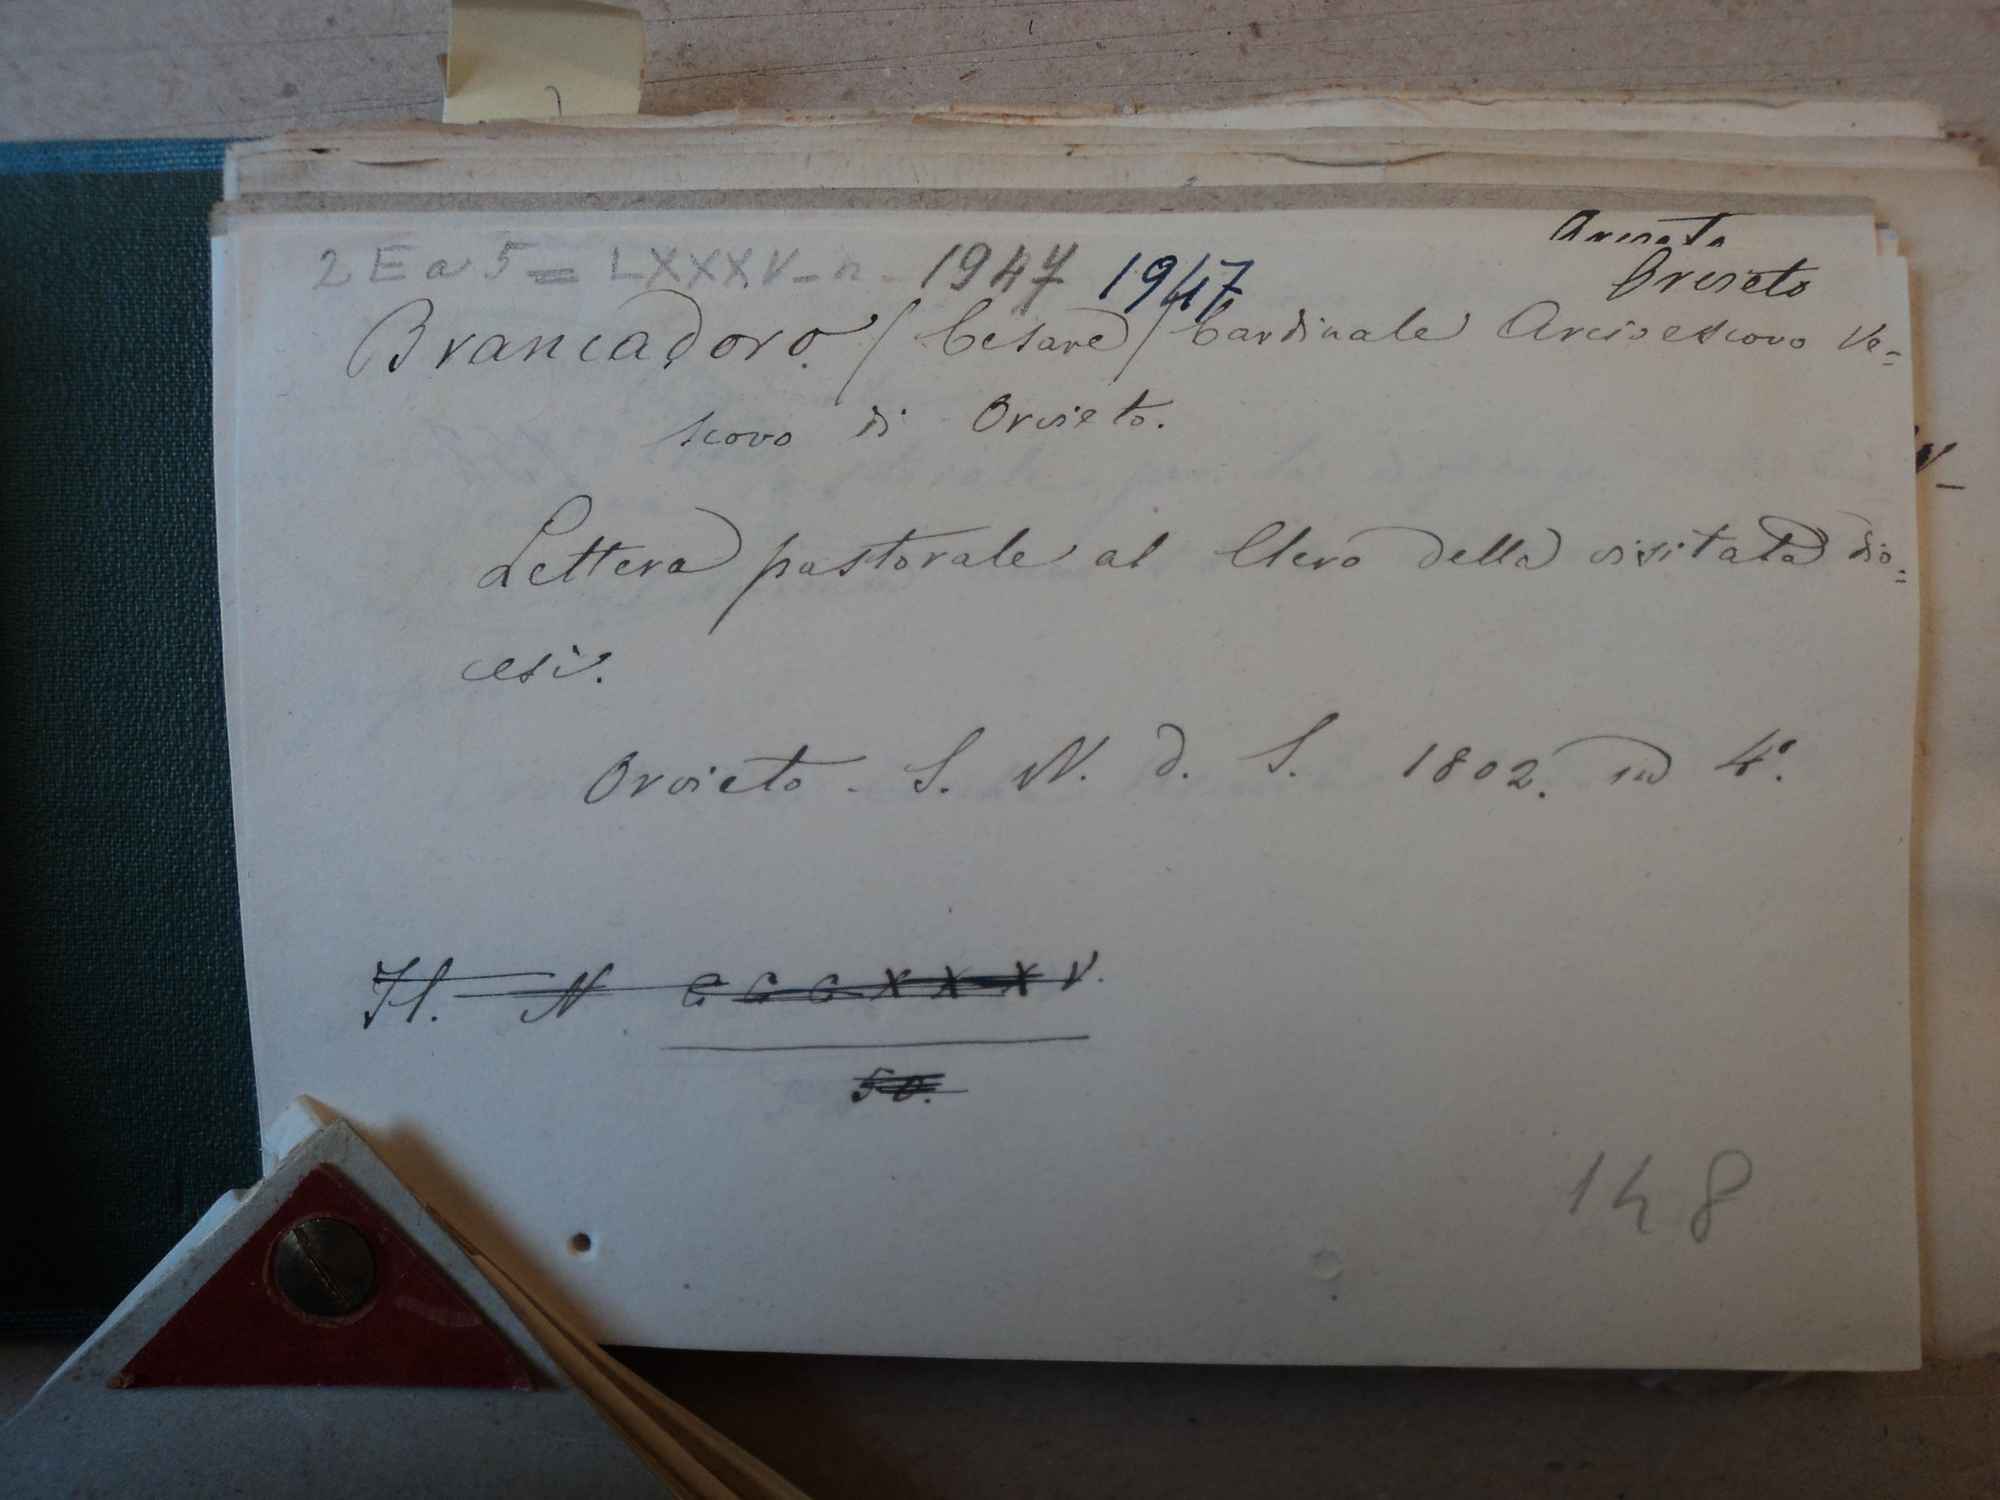 2 E a 5 = LXXXV - n - 1947 1947
Orvieto
Brancadoro / Cesare / Cardinale Arcivescovo Ve=
scovo di Orvieto.
Lettera pastorale al Clero della visitata dio=
cesi.
Orvieto - S. N. d. S. 1802. in 4°.
H. N CCCXXXV.
50.
148